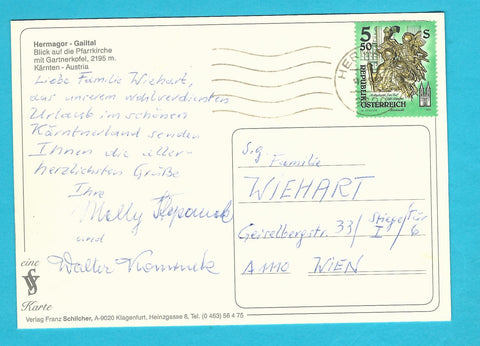 Hermagor - Gailtal
Blick auf die Pfarrkirche
mit Gartnerkofel, 2195 m.
Kärnten - Austria
Liebe Familie Wiehart,
aus unserem wohlverdienten
Urlaub im schönen
Kärntnerland senden
Ihnen die aller-
herzlichsten Grüße
Ihre
Molly
und
Walter
eine
Karte
Verlag Franz Schilcher, A-9020 Klagenfurt, Heinzgasse 8, Tel. (0 463) 56 4 75
5 50 S
REPUBLIK
ÖSTERREICH
HER
S.g.
Familie
WIEHART
Geiselbergstr. 33/ Stiege/Tür
I / 6
A 1110 WIEN